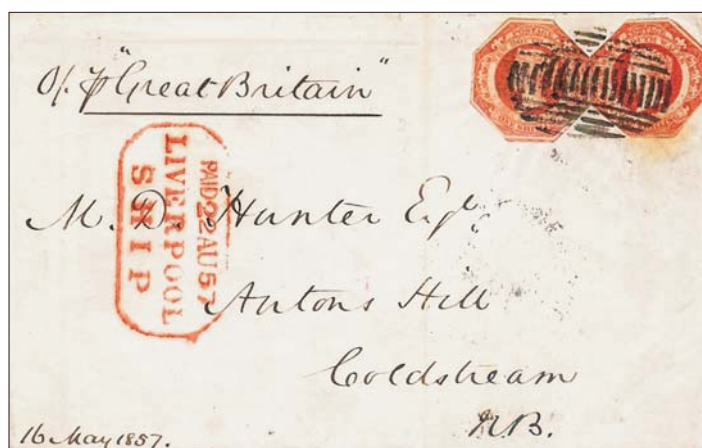 "Great Britain"
PAID 22 AU 57
LIVERPOOL
SHIP
M. D. Hunter Esqr
Antons Hill
Coldstream
N.B.
16 May 1857.